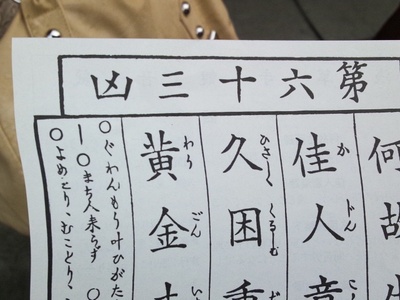 第六十三凶
何故
佳人
久困重
黄金
○ぐわんもう叶ひがた
○まち人来らず ○
○よめとり、むことり、